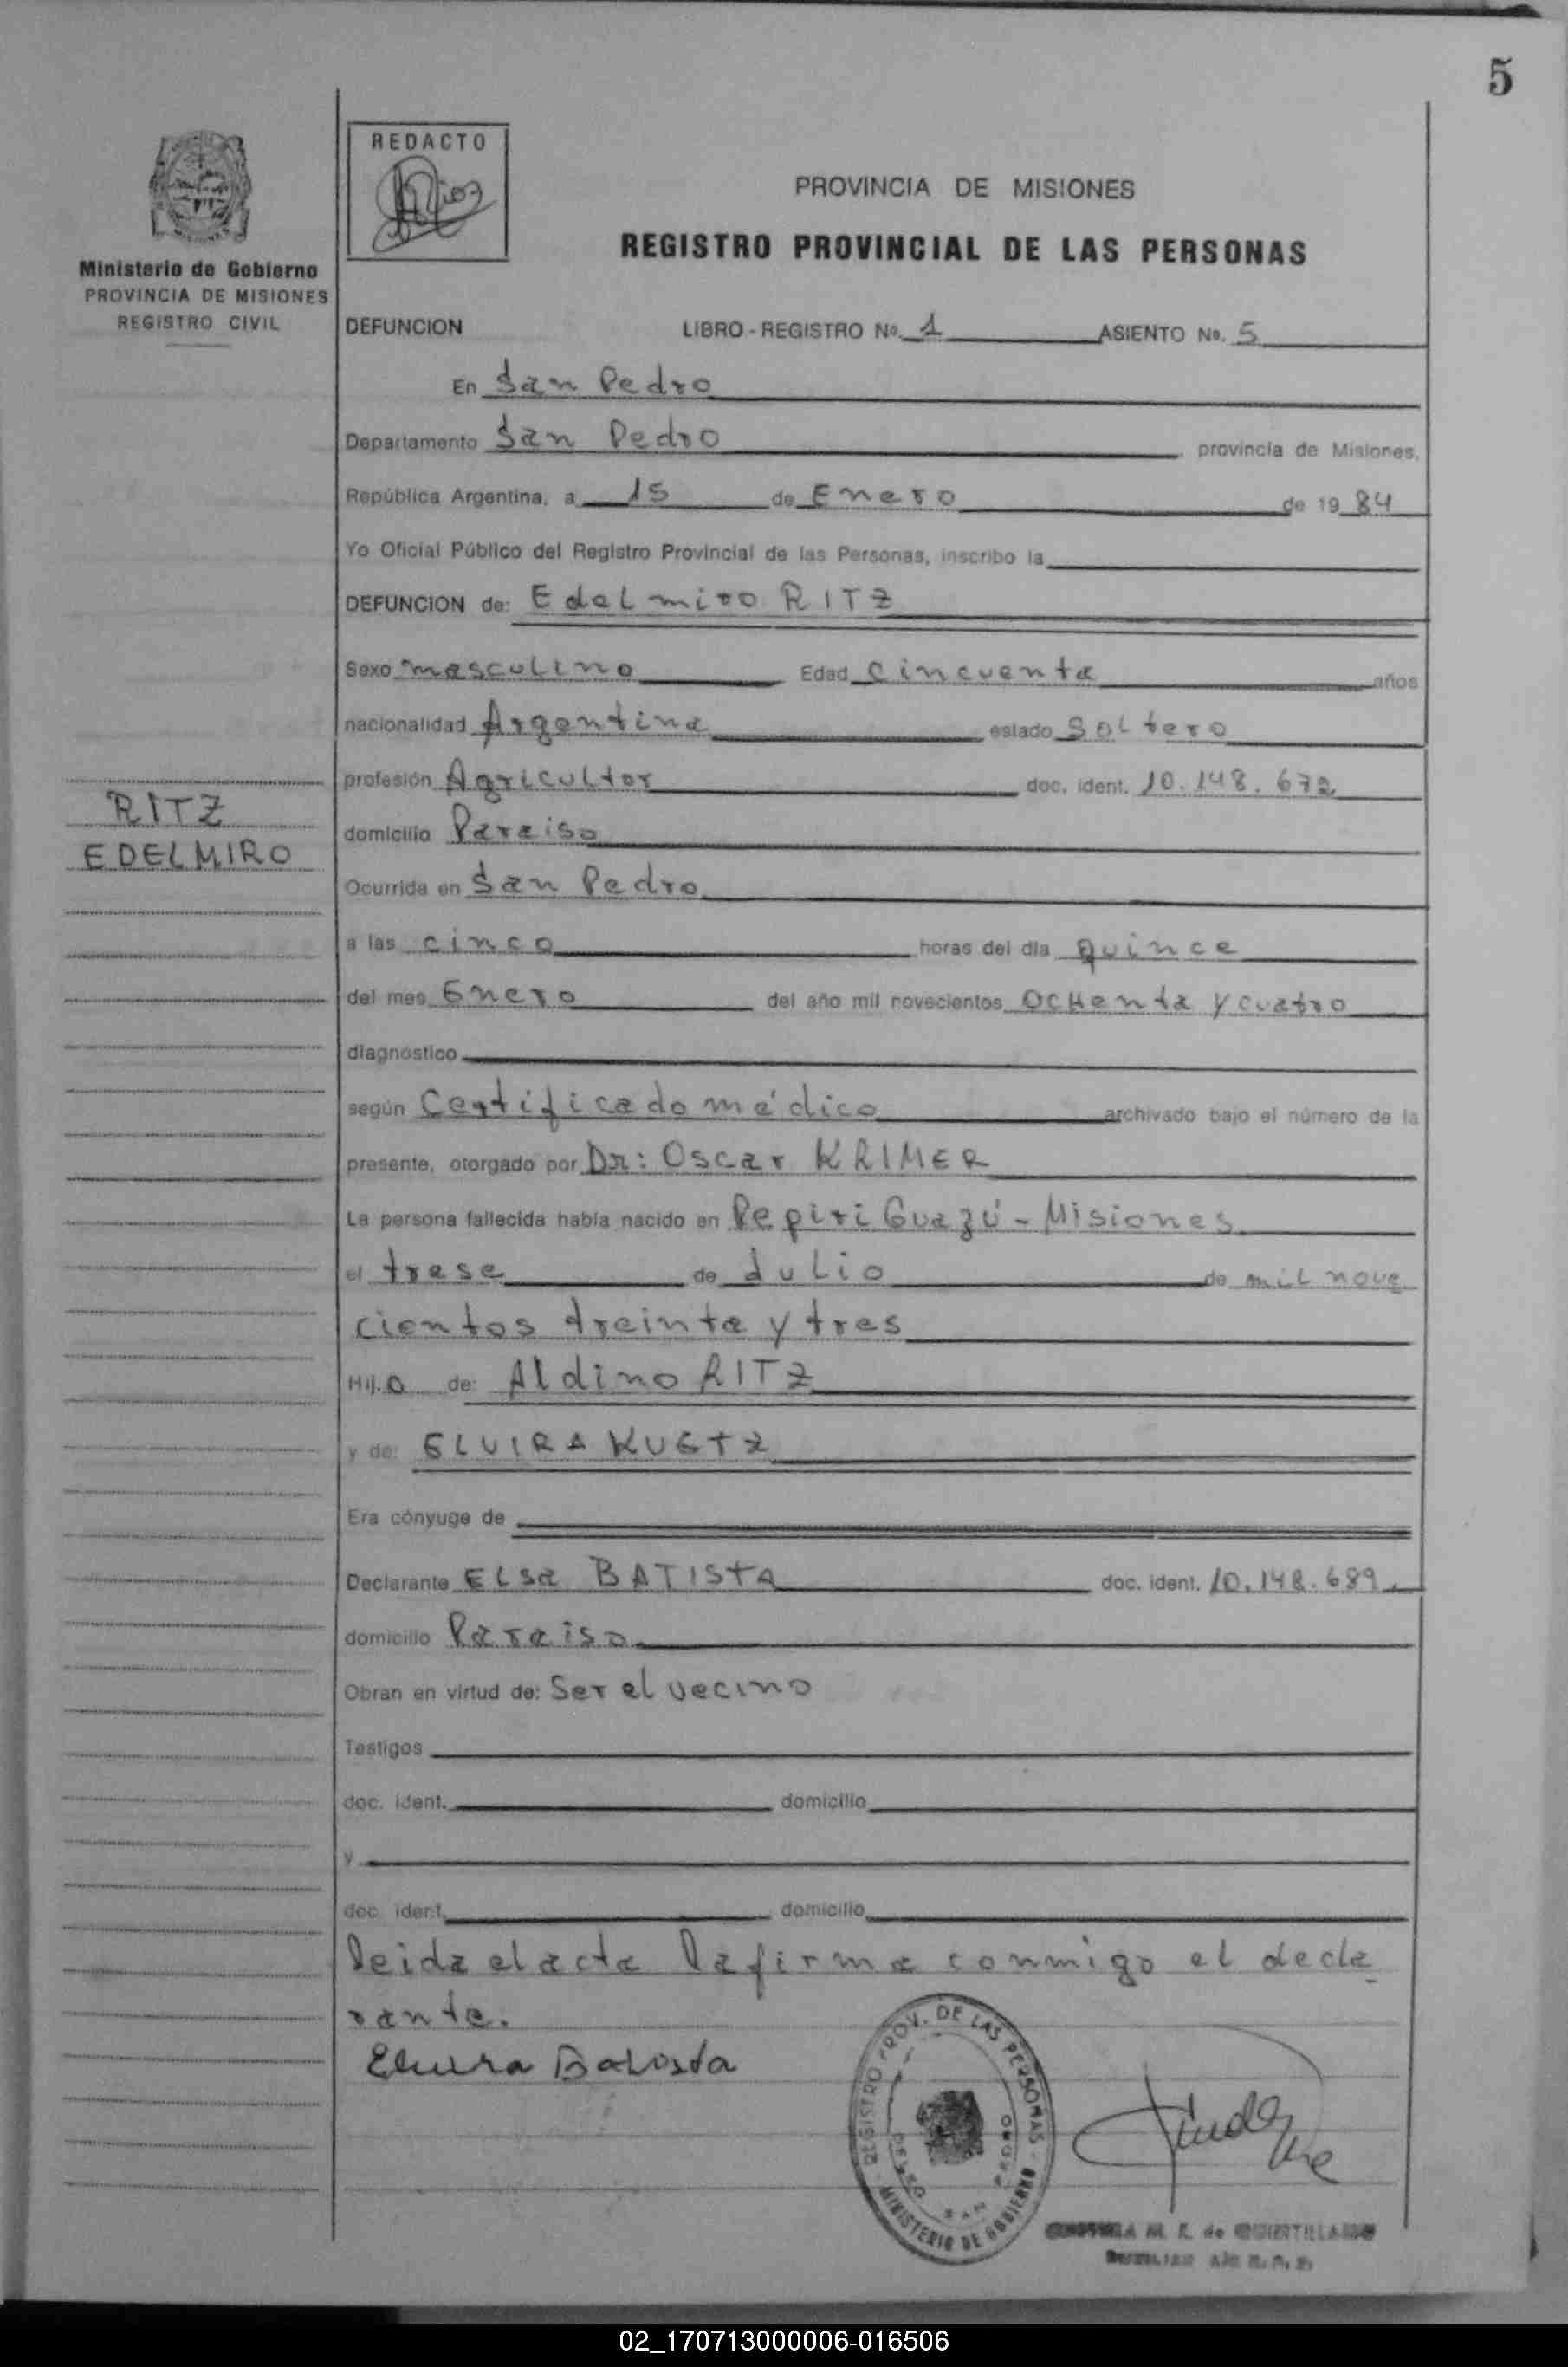 5
REDACTO
PROVINCIA DE MISIONES
REGISTRO PROVINCIAL DE LAS PERSONAS
Ministerio de Gobierno
PROVINCIA DE MISIONES
REGISTRO CIVIL
DEFUNCION LIBRO - REGISTRO No. 1 ASIENTO No. 5
En San Pedro
Departamento San Pedro provincia de Misiones,
República Argentina, a 15 de Enero de 19 84
Yo Oficial Público del Registro Provincial de las Personas, inscribo la
DEFUNCION de: Edelmiro RITZ
Sexo masculino Edad Cincuenta años
nacionalidad Argentina estado Soltero
profesión Agricultor doc. ident. 10.148.672
RITZ
EDELMIRO
domicilio Paraiso
Ocurrida en San Pedro
a las cinco horas del día Quince
del mes Enero del año mil novecientos Ochenta y cuatro
diagnóstico
según Certificado médico archivado bajo el número de la
presente, otorgado por Dr: Oscar KRIMER
La persona fallecida había nacido en Pepiri Guazú - Misiones
el trese de Julio de mil nove
cientos treinta y tres
Hij.o de: Aldino RITZ
y de: ELVIRA KUETZ
Era cónyuge de
Declarante ELsa BATISTA doc. ident. 10.148.689.
domicilio Paraiso
Obran en virtud de: Ser el vecino
Testigos
doc. ident. domicilio
y
doc. ident. domicilio
leida el acta la firma conmigo el decla
rante.
Elvira Batista
REGISTRO PROV. DE LAS PERSONAS
MINISTERIO DE GOBIERNO
M. E. de QUINTILLANO
02_170713000006-016506